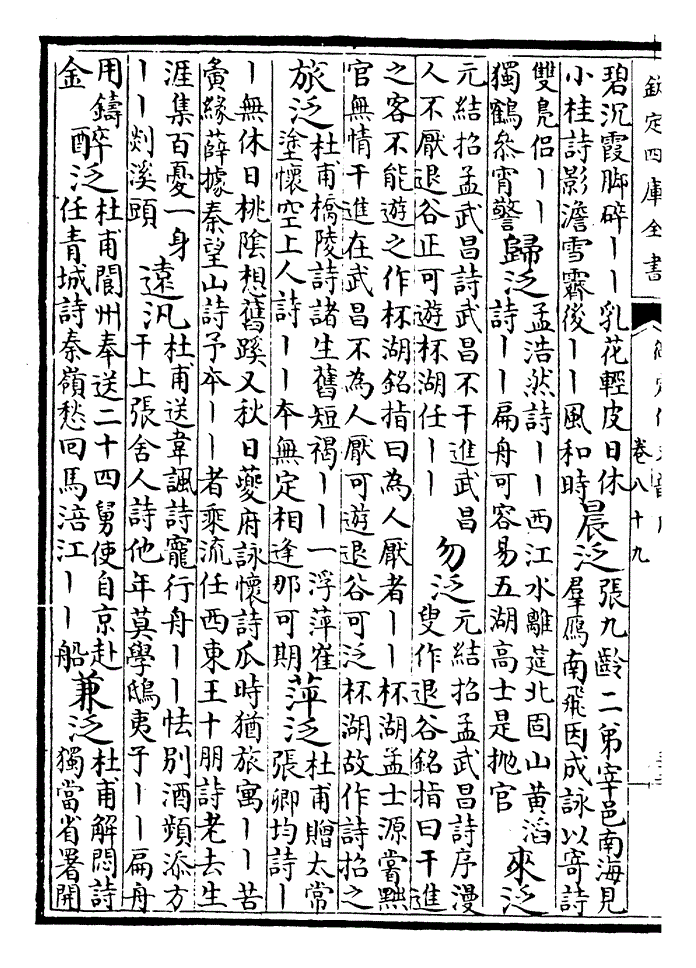 欽定四庫全書
卷八十九
碧沉霞脚碎——乳花輕皮日休
小桂詩影澹雪霽後——風和時
晨泛
張九齡二弟宰邑南海見
羣鴈南飛因成詠以寄詩
雙鳧侶——
獨鶴叅宵警
歸泛
孟浩然詩——西江水離筵北固山黄滔
詩——扁舟可容易五湖高士是抛官
來泛
元結招孟武昌詩武昌不干進武昌
人不厭退谷正可遊杯湖任——
勿泛
元結招孟武昌詩序漫
叟作退谷銘指曰干進
之客不能遊之作杯湖銘指曰為人厭者——杯湖孟士源嘗黜
官無情干進在武昌不為人厭可遊退谷可泛杯湖故作詩招之
旅泛
杜甫橋陵詩諸生舊短褐——一浮萍崔
塗懷空上人詩——本無定相逢那可期
萍泛
杜甫贈太常
張卿均詩—
—無休日桃陰想舊蹊又秋日夔府詠懷詩瓜時猶旅寓——苦
夤緣薛據秦望山詩予本——者乘流任西東王十朋詩老去生
涯集百憂一身
——剡溪頭
遠汎
杜甫送韋諷詩寵行舟——怯别酒頻添方
干上張舍人詩他年莫學鴟夷子——扁舟
用鑄
金
醉泛
杜甫閬州奉送二十四舅使自京赴
任青城詩秦嶺愁回馬涪江——船
兼泛
杜甫解悶詩
獨當省署開